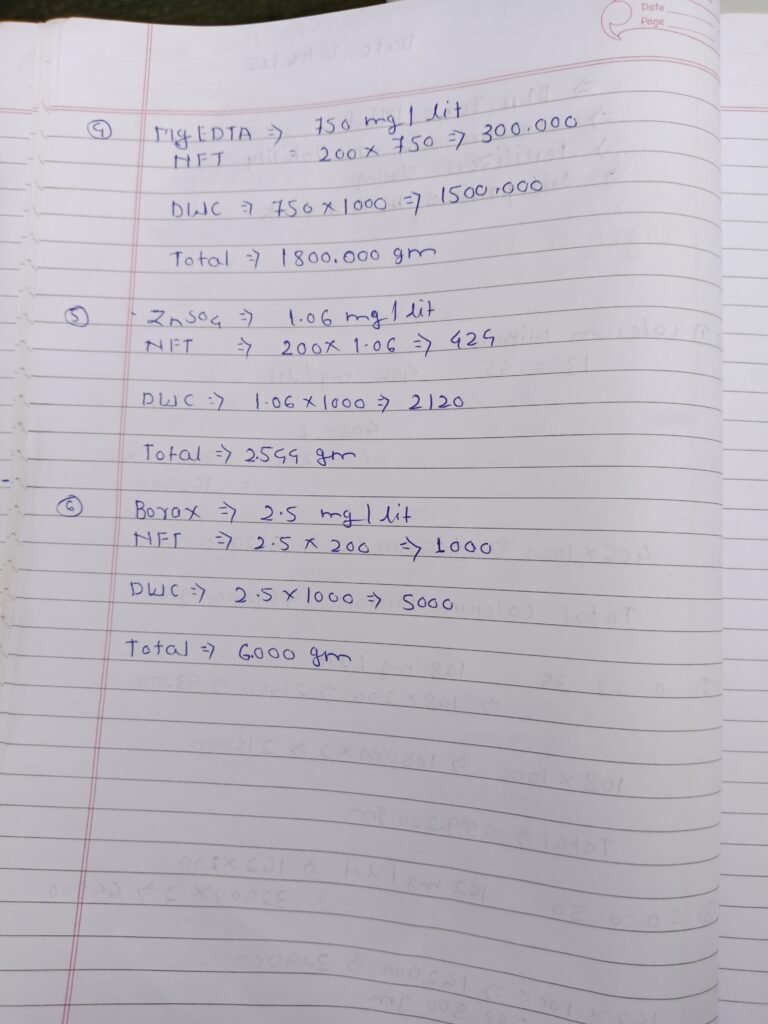 Date
Page
④ Mg EDTA ⇒ 750 mg / lit
NFT = 200 x 750 ⇒ 300.000
DWC ⇒ 750 x 1000 ⇒ 1500.000
Total ⇒ 1800.000 gm
⑤ ZnSO4 ⇒ 1.06 mg / lit
NFT ⇒ 200 x 1.06 ⇒ 424
DWC ⇒ 1.06 x 1000 ⇒ 2120
Total ⇒ 2.544 gm
⑥ Borax ⇒ 2.5 mg / lit
NFT ⇒ 2.5 x 200 ⇒ 1000
DWC ⇒ 2.5 x 1000 ⇒ 5000
Total ⇒ 6.000 gm